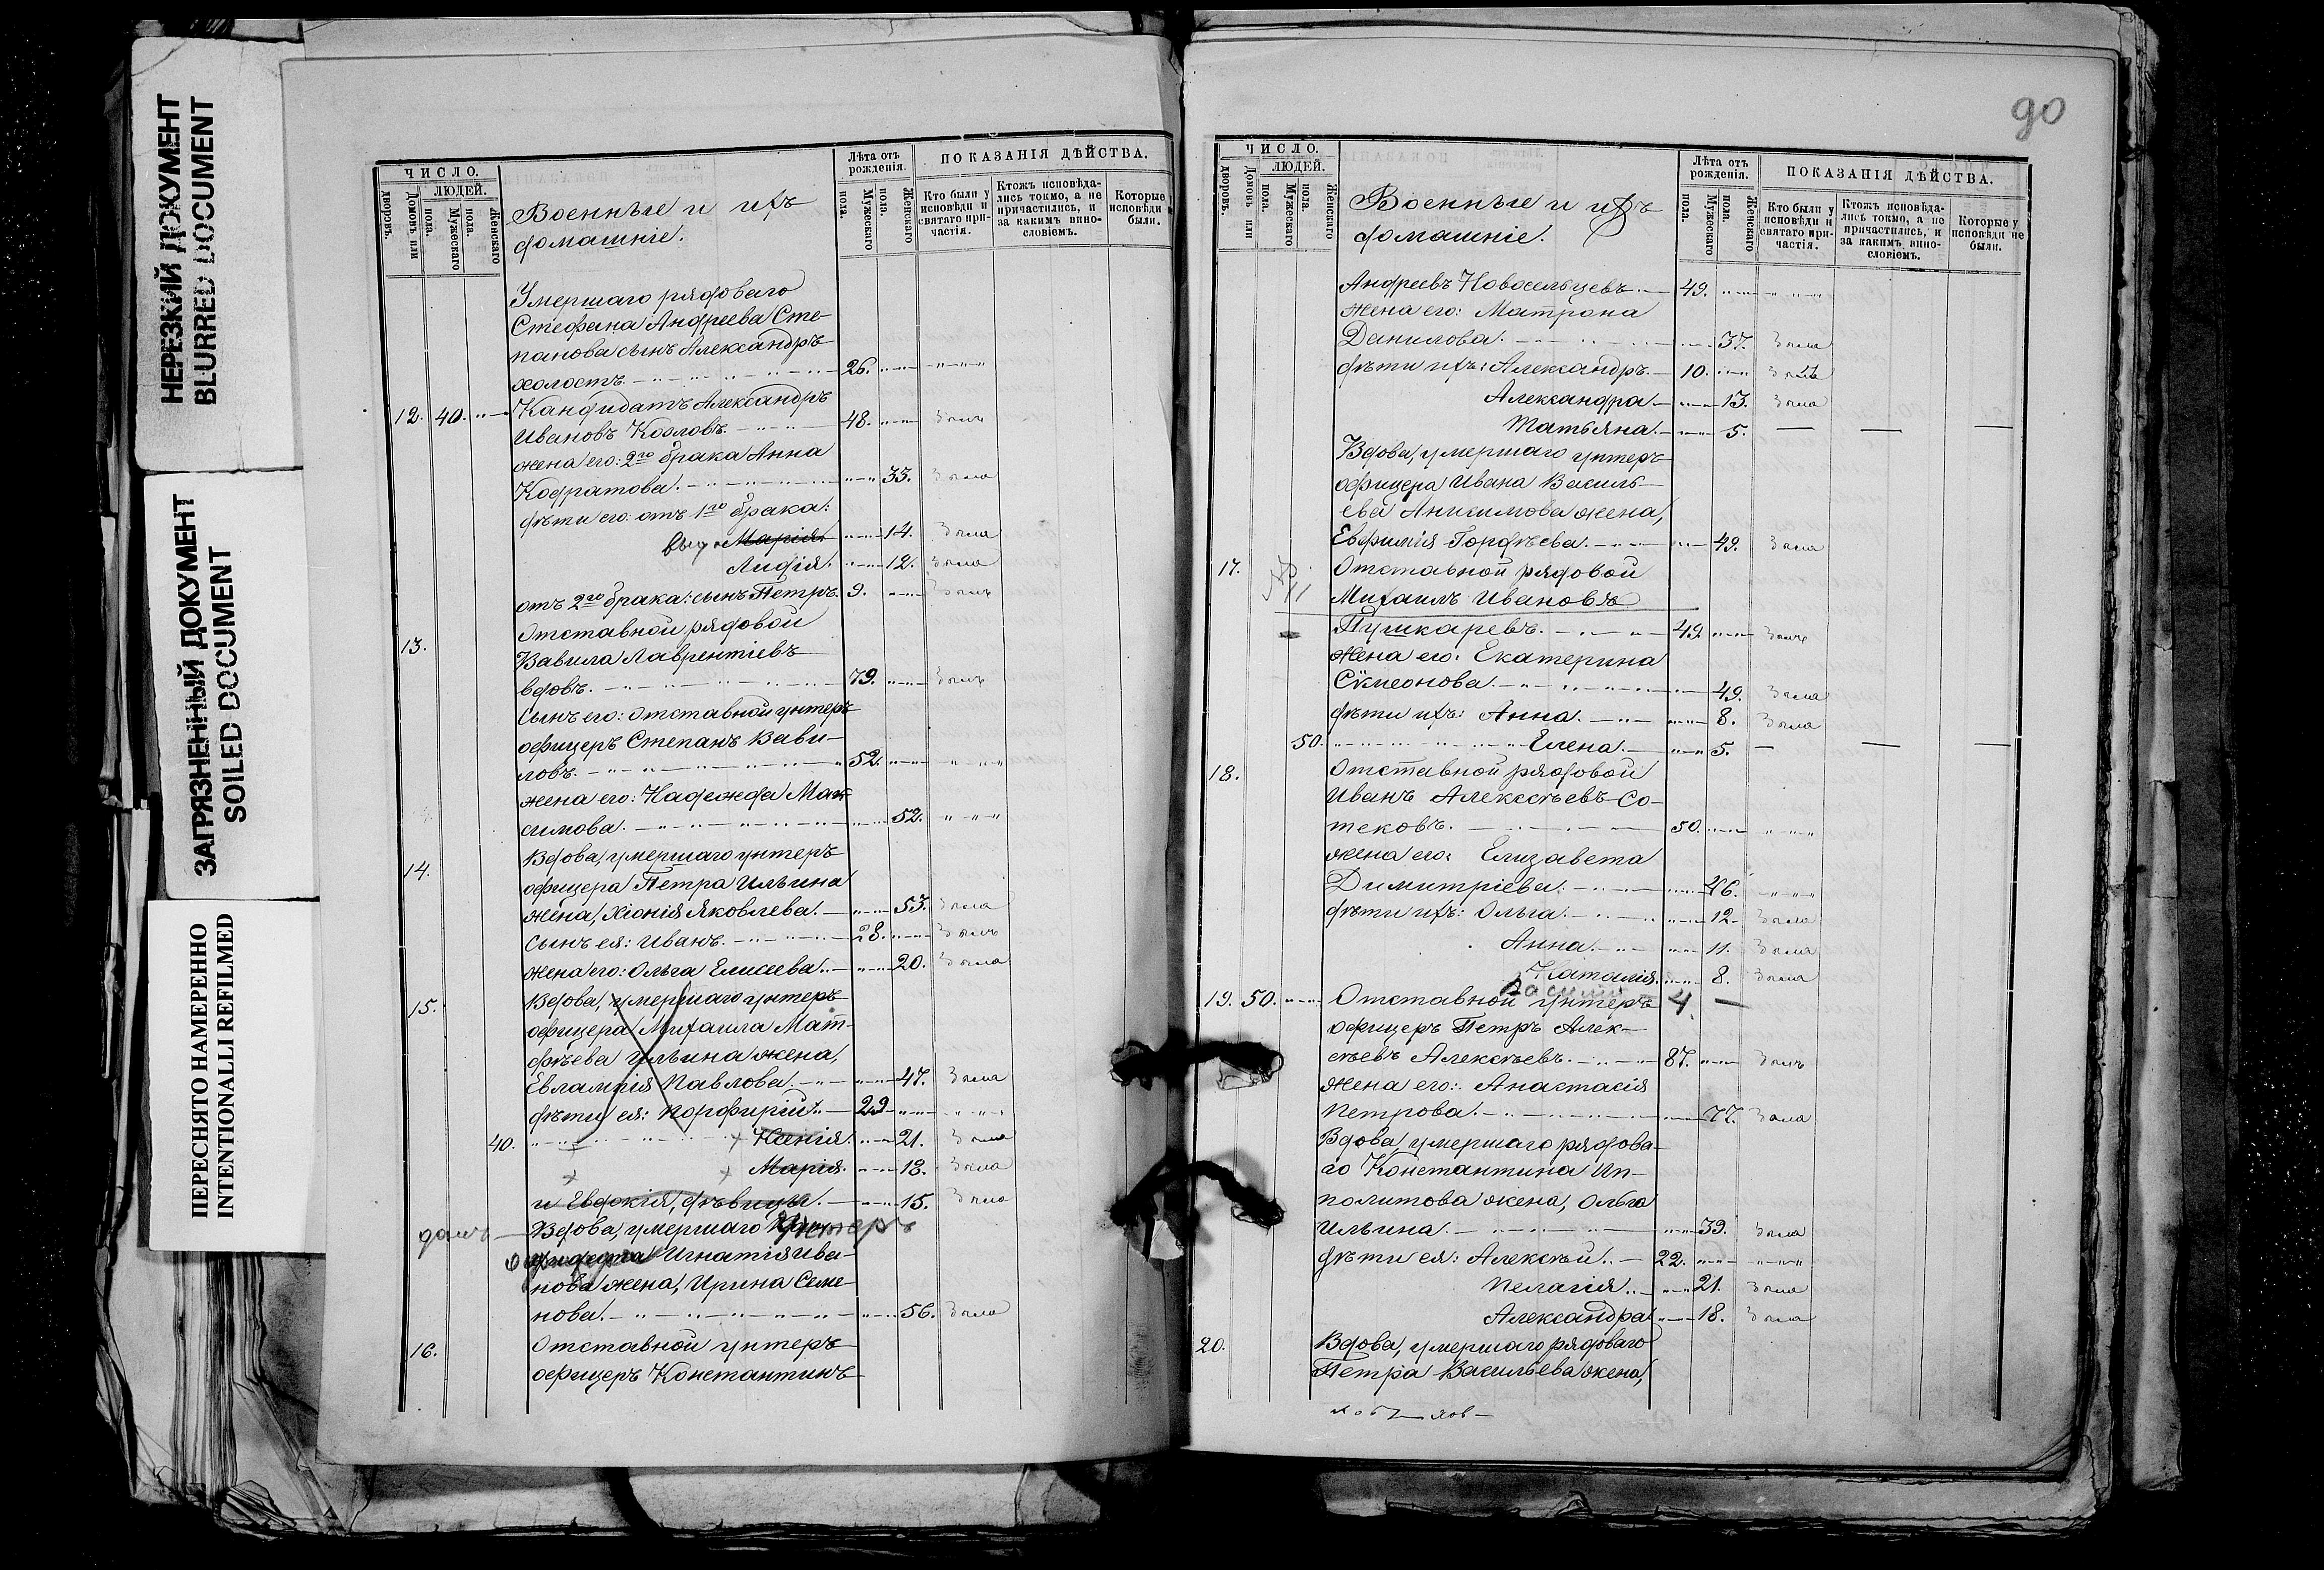 НЕРЕЗКИЙ ДОКУМЕНТ
BLURRED DOCUMENT
ЗАГРЯЗНЕННЫЙ ДОКУМЕНТ
SOILED DOCUMENT
ПЕРЕСНЯТО НАМЕРЕННО
INTENTIONALLI REFILMED
ЧИСЛО.
ЛЮДЕЙ.
Дворовъ.
Домовъ или
Мужескаго пола.
Женскаго пола.
Военные и ихъ
домашніе.
Лѣта отъ
рожденія.
Мужескаго пола.
Женскаго пола.
ПОКАЗАНІЯ ДѢЙСТВА.
Кто были у
исповѣди и
святаго при-
частія.
Ктожъ исповѣда-
лись токмо, а не
причастились, и
за какимъ вино-
словіемъ.
Которые
исповѣди
были.
Умершаго рядоваго
Стефана Андреева Сте-
панова сынъ Александръ
холостъ. 26.
12. 40. Кандидатъ Александръ
Ивановъ Козловъ. 48. былъ
жена его: 2го брака Анна
Кодратова. 33. была
дѣти его: отъ 1го брака:
Марія 14. была
Лидія. 12. была
отъ 2го брака: сынъ Петръ. 9. былъ
13. Отставной рядовой
Вавила Лаврентіевъ
вдовъ. 79. былъ
сынъ его: отставной унтеръ
офицеръ Степанъ Вави-
ловъ. 52.
жена его: Надежда Мак-
симова. 52.
14. Вдова, умершаго унтеръ
офицера Петра Ильина
жена, Хіонія Яковлева. 53. была
сынъ ея: Иванъ. 28. былъ
жена его: Ольга Елисеева. 20. была
15. Вдова, умершаго унтеръ
офицера Михаила Мат-
фѣева Ульина жена,
Евлампія Павлова. 47. была
дѣти ея: Порфирій. 29
40. Ксенія. 21. была
Марія. 18. была
и Евдокія, дѣвицы. 15. была
Вдова, умершаго унтеръ
офицера Игнатія Ива-
нова жена, Ирина Семе-
нова. 56. была
16. Отставной унтеръ
офицеръ Константинъ
90
ЧИСЛО.
ЛЮДЕЙ.
Дворовъ.
Домовъ или
Мужескаго пола.
Женскаго пола.
Военные и ихъ
домашніе.
Лѣта отъ
рожденія.
Мужескаго пола.
Женскаго пола.
ПОКАЗАНІЯ ДѢЙСТВА.
Кто были у
исповѣди и
святаго при-
частія.
Ктожъ исповѣда-
лись токмо, а не
причастились, и
за какимъ вино-
словіемъ.
Которые у
исповѣди не
были.
Андреевъ Новосельцевъ. 49.
жена его: Матрона
Данилова. 37. была
дѣти ихъ: Александръ. 10. былъ
Александра 13. была
Татьяна. 5. — — —
Вдова, умершаго унтеръ
офицера Ивана Василь-
ева Анисимова жена,
Евфимія Гордѣева. 49. была
17. Отставной рядовой
Михаилъ Ивановъ
Пушкаревъ. 49 былъ
жена его: Екатерина
Сѵмеонова. 49. была
дѣти ихъ: Анна. 8. была
50. Елена. 5. — — —
18. Отставной рядовой
Иванъ Алексѣевъ Со-
тековъ. 50.
жена его: Елизавета
Димитріева. 46.
дѣти ихъ: Ольга. 12. была
Анна. 11. была
Наталія. 8. была
19. 50. Отставной унтеръ 4. —
офицеръ Петръ Алек-
сѣевъ Алексѣевъ. 87. былъ
жена его: Анастасія
Петрова. 77. была
Вдова умершаго рядова-
го Константина Ип-
политова жена, Ольга
Ильина. 39. была
дѣти ея: Алексѣй. 22.
Пелагія. 21. была
Александра. 18. была
20. Вдова, умершаго рядоваго
Петра Васильева жена,